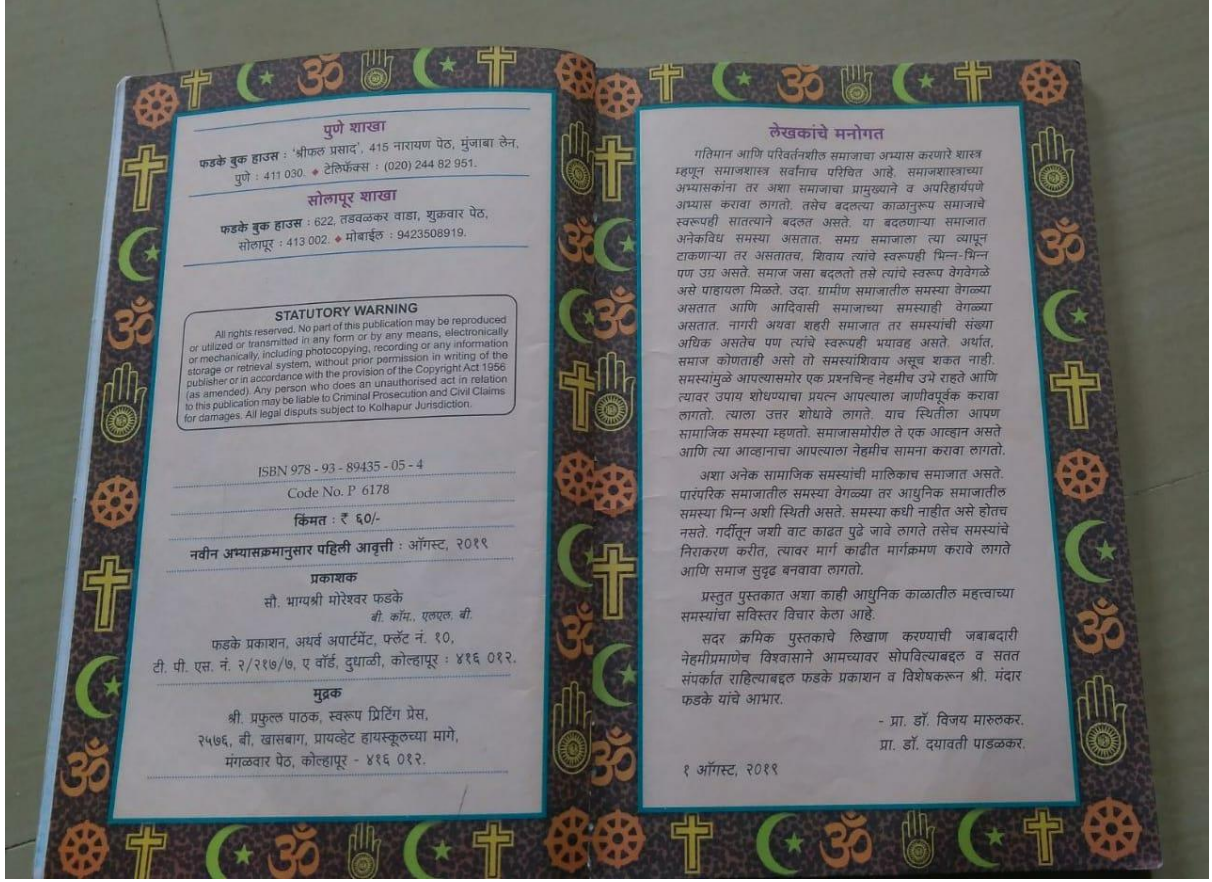 पुणे शाखा
फडके बुक हाउस : 'श्रीफल प्रसाद', 415 नारायण पेठ, मुंजाबा लेन,
पुणे : 411 030. ♦ टेलिफॅक्स : (020) 244 82 951.
सोलापूर शाखा
फडके बुक हाउस : 622, तडवळकर वाडा, शुक्रवार पेठ,
सोलापूर : 413 002. ♦ मोबाईल : 9423508919.
STATUTORY WARNING
All rights reserved. No part of this publication may be reproduced
or utilized or transmitted in any form or by any means, electronically
or mechanically, including photocopying, recording or any information
storage or retrieval system, without prior permission in writing of the
publisher or in accordance with the provision of the Copyright Act 1956
(as amended). Any person who does an unauthorised act in relation
to this publication may be liable to Criminal Prosecution and Civil Claims
for damages. All legal disputes subject to Kolhapur Jurisdiction.
ISBN 978 - 93 - 89435 - 05 - 4
Code No. P 6178
किंमत : ₹ ६०/-
नवीन अभ्यासक्रमानुसार पहिली आवृत्ती : ऑगस्ट, २०१९
प्रकाशक
सौ. भाग्यश्री मोरेश्वर फडके
बी. कॉम., एलएल. बी.
फडके प्रकाशन, अथर्व अपार्टमेंट, फ्लॅट नं. १०,
टी. पी. एस. नं. २/२१७/७, ए वॉर्ड, दुधाळी, कोल्हापूर : ४१६ ०१२.
मुद्रक
श्री. प्रफुल्ल पाठक, स्वरूप प्रिंटिंग प्रेस,
२५७६, बी, खासबाग, प्रायव्हेट हायस्कूलच्या मागे,
मंगळवार पेठ, कोल्हापूर - ४१६ ०१२.
लेखकांचे मनोगत
गतिमान आणि परिवर्तनशील समाजाचा अभ्यास करणारे शास्त्र
म्हणून समाजशास्त्र सर्वांनाच परिचित आहे. समाजशास्त्राच्या
अभ्यासकांना तर अशा समाजाचा प्रामुख्याने व अपरिहार्यपणे
अभ्यास करावा लागतो. तसेच बदलत्या काळानुरूप समाजाचे
स्वरूपही सातत्याने बदलत असते. या बदलणाऱ्या समाजात
अनेकविध समस्या असतात. समग्र समाजाला त्या व्यापून
टाकणाऱ्या तर असतातच, शिवाय त्यांचे स्वरूपही भिन्न-भिन्न
पण उग्र असते. समाज जसा बदलतो तसे त्यांचे स्वरूप वेगवेगळे
असे पाहायला मिळते. उदा. ग्रामीण समाजातील समस्या वेगळ्या
असतात आणि आदिवासी समाजाच्या समस्याही वेगळ्या
असतात. नागरी अथवा शहरी समाजात तर समस्यांची संख्या
अधिक असतेच पण त्यांचे स्वरूपही भयावह असते. अर्थात,
समाज कोणताही असो तो समस्यांशिवाय असूच शकत नाही.
समस्यांमुळे आपल्यासमोर एक प्रश्नचिन्ह नेहमीच उभे राहते आणि
त्यावर उपाय शोधण्याचा प्रयत्न आपल्याला जाणीवपूर्वक करावा
लागतो. त्याला उत्तर शोधावे लागते. याच स्थितीला आपण
सामाजिक समस्या म्हणतो. समाजासमोरील ते एक आव्हान असते
आणि त्या आव्हानाचा आपल्याला नेहमीच सामना करावा लागतो.
अशा अनेक सामाजिक समस्यांची मालिकाच समाजात असते.
पारंपरिक समाजातील समस्या वेगळ्या तर आधुनिक समाजातील
समस्या भिन्न अशी स्थिती असते. समस्या कधी नाहीत असे होतच
नसते. गर्दीतून जशी वाट काढत पुढे जावे लागते तसेच समस्यांचे
निराकरण करीत, त्यावर मार्ग काढीत मार्गक्रमण करावे लागते
आणि समाज सुदृढ बनवावा लागतो.
प्रस्तुत पुस्तकात अशा काही आधुनिक काळातील महत्त्वाच्या
समस्यांचा सविस्तर विचार केला आहे.
सदर क्रमिक पुस्तकाचे लिखाण करण्याची जबाबदारी
नेहमीप्रमाणेच विश्वासाने आमच्यावर सोपविल्याबद्दल व सतत
संपर्कात राहिल्याबद्दल फडके प्रकाशन व विशेषकरून श्री. मंदार
फडके यांचे आभार.
- प्रा. डॉ. विजय मारुलकर.
प्रा. डॉ. दयावती पाडळकर.
१ ऑगस्ट, २०१९